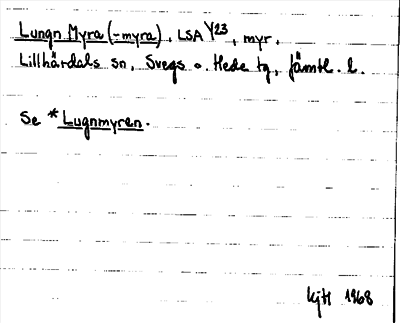 Lungn Myra (-myra), LSA Y23, myr.
Lillhärdals sn, Svegs o. Hede tg, Jämtl. l.
Se *Lugnmyren.
KjH 1968